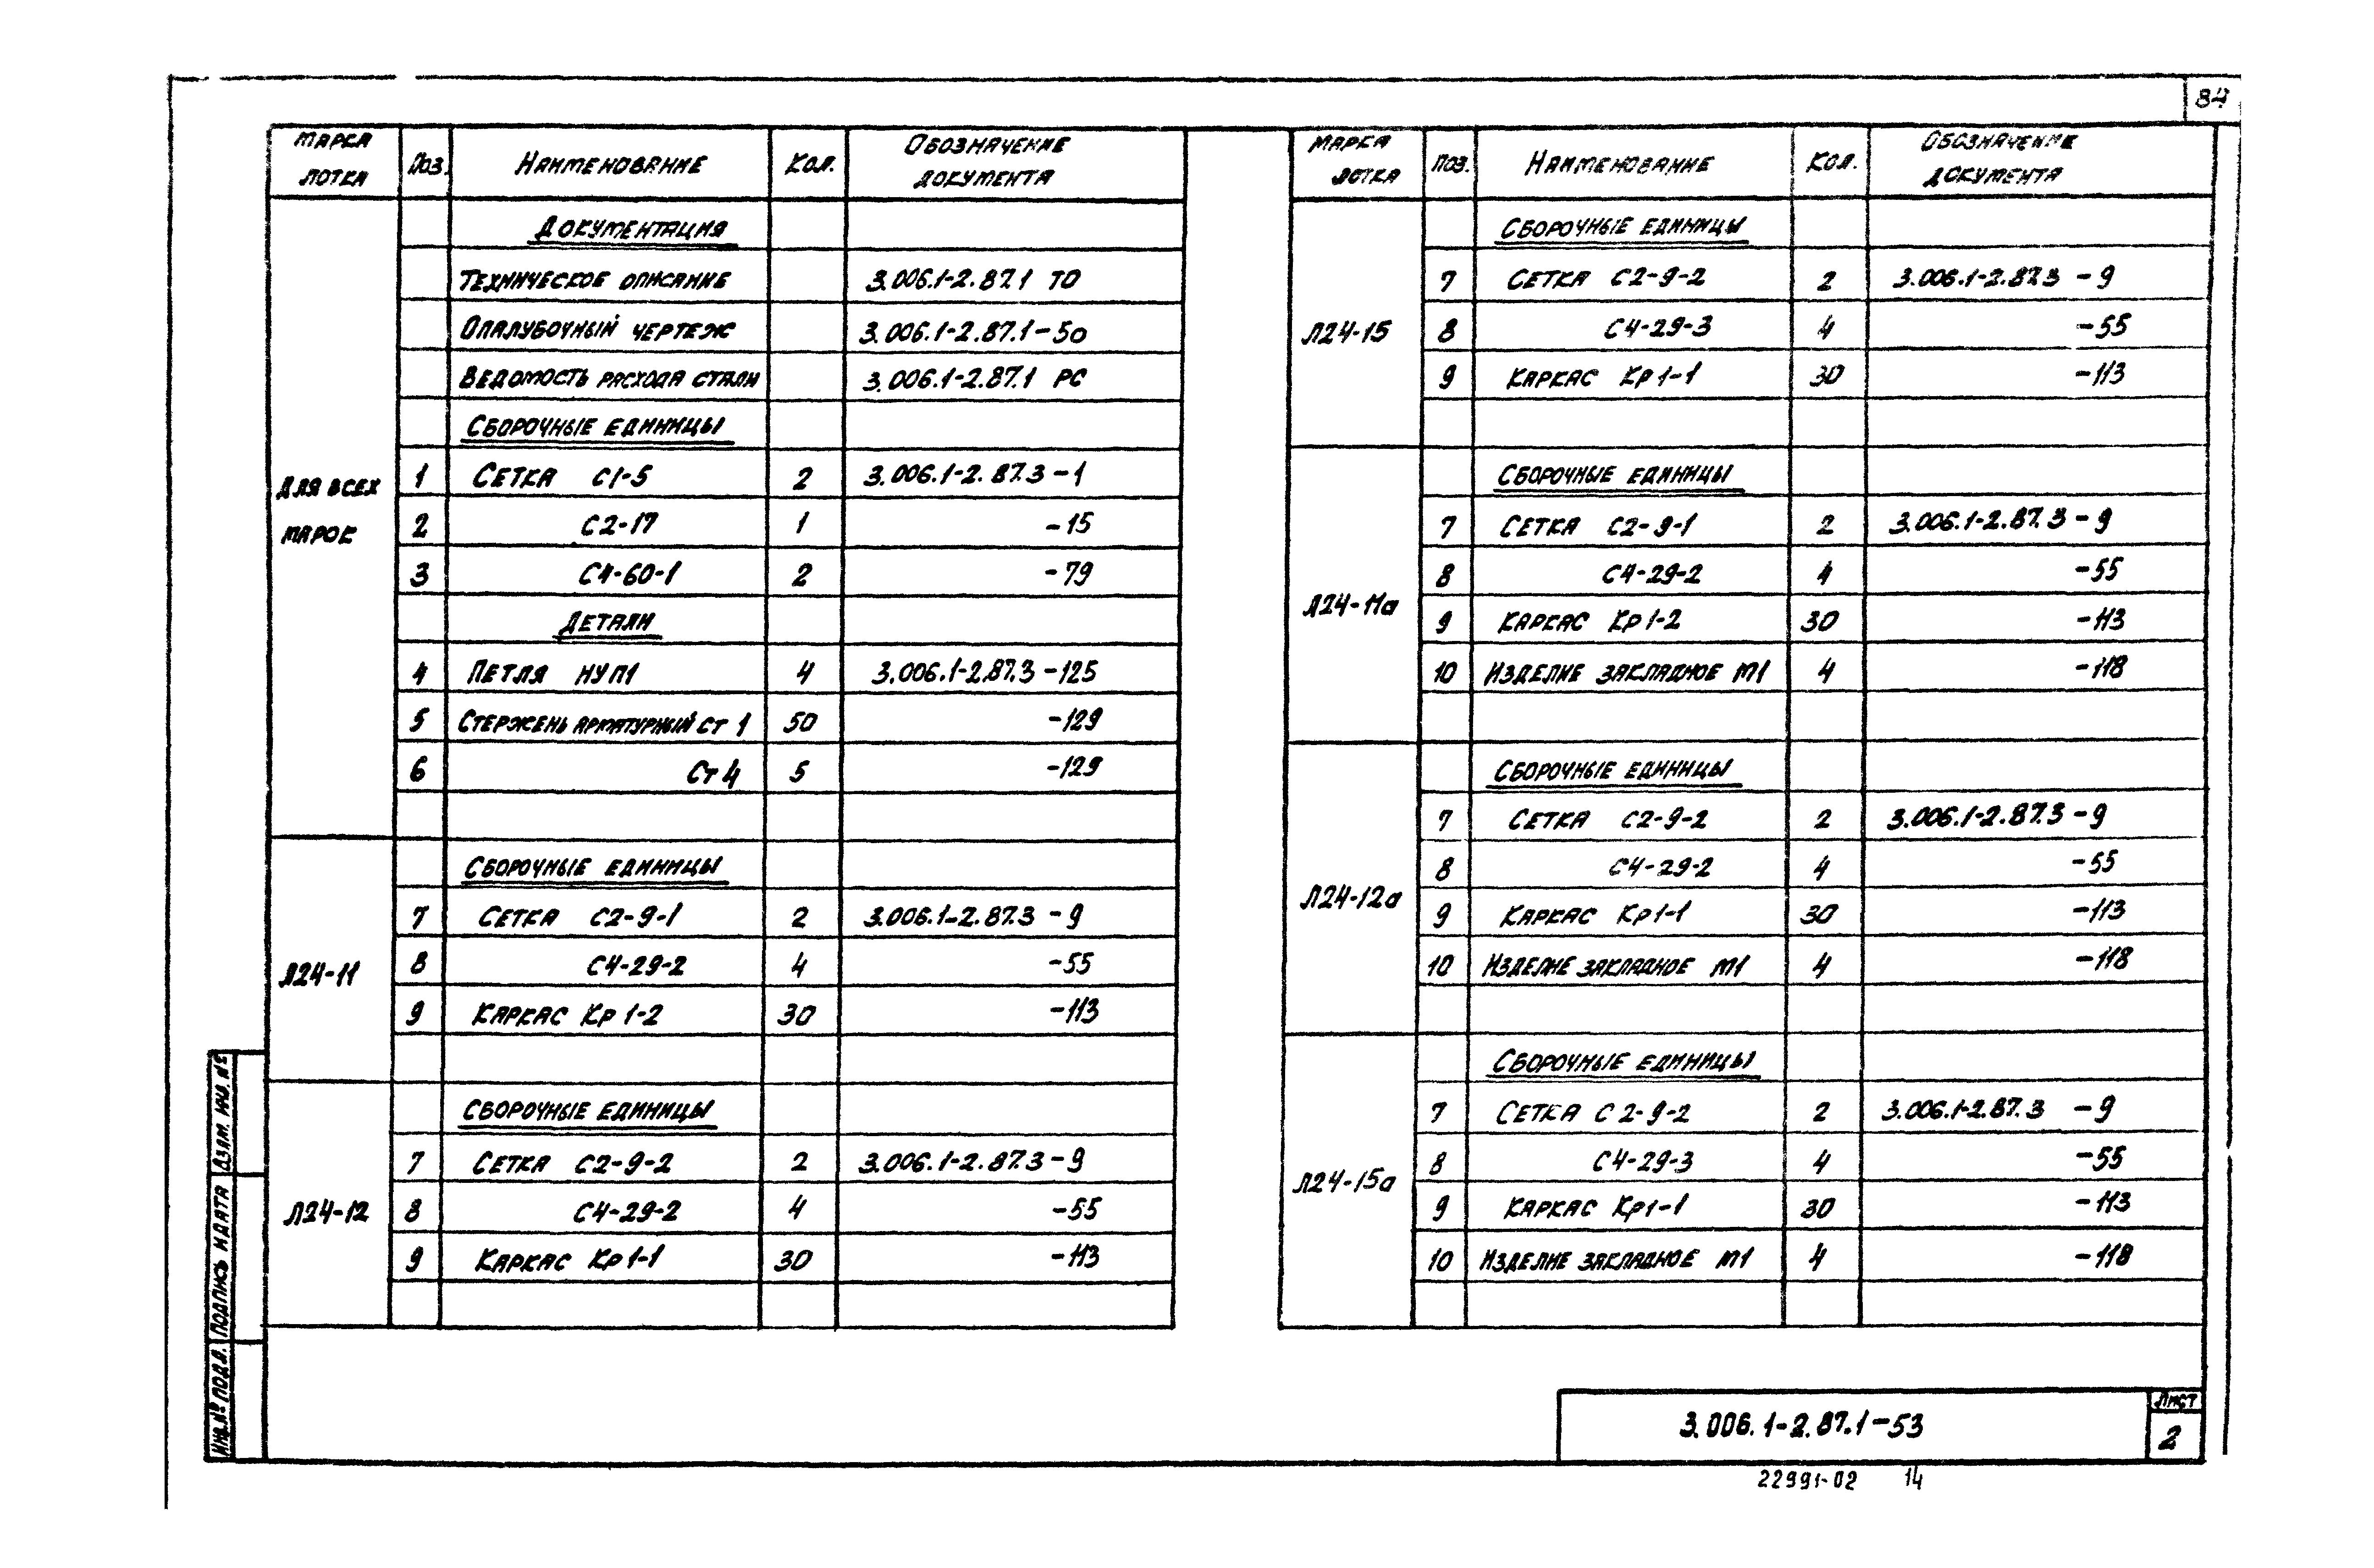 84
Марка лотка Поз. Наименование Кол. Обозначение документа
Документация
Техническое описание 3.006.1-2.87.1 ТО
Опалубочный чертеж 3.006.1-2.87.1-50
Ведомость расхода стали 3.006.1-2.87.1 РС
Сборочные единицы
Для всех марок
1 Сетка С1-5 2 3.006.1-2.87.3-1
2 С2-17 1 -15
3 С4-60-1 2 -79
Детали
4 Петля НУП1 4 3.006.1-2.87.3-125
5 Стержень арматурный Ст 1 50 -129
6 Ст 4 5 -129
Сборочные единицы
7 Сетка С2-9-1 2 3.006.1-2.87.3-9
Л24-11 8 С4-29-2 4 -55
9 Каркас Кр 1-2 30 -113
Сборочные единицы
7 Сетка С2-9-2 2 3.006.1-2.87.3-9
Л24-12 8 С4-29-2 4 -55
9 Каркас Кр 1-1 30 -113
Марка лотка Поз. Наименование Кол. Обозначение документа
Сборочные единицы
7 Сетка С2-9-2 2 3.006.1-2.87.3-9
Л24-15 8 С4-29-3 4 -55
9 Каркас Кр 1-1 30 -113
Сборочные единицы
7 Сетка С2-9-1 2 3.006.1-2.87.3-9
8 С4-29-2 4 -55
Л24-11а 9 Каркас Кр 1-2 30 -113
10 Изделие закладное М1 4 -118
Сборочные единицы
7 Сетка С2-9-2 2 3.006.1-2.87.3-9
8 С4-29-2 4 -55
Л24-12а 9 Каркас Кр 1-1 30 -113
10 Изделие закладное М1 4 -118
Сборочные единицы
7 Сетка С2-9-2 2 3.006.1-2.87.3-9
8 С4-29-3 4 -55
Л24-15а 9 Каркас Кр 1-1 30 -113
10 Изделие закладное М1 4 -118
Инв.№ подл. Подпись и дата Взам. инв. №
3.006.1-2.87.1-53
Лист
2
22991-02 14